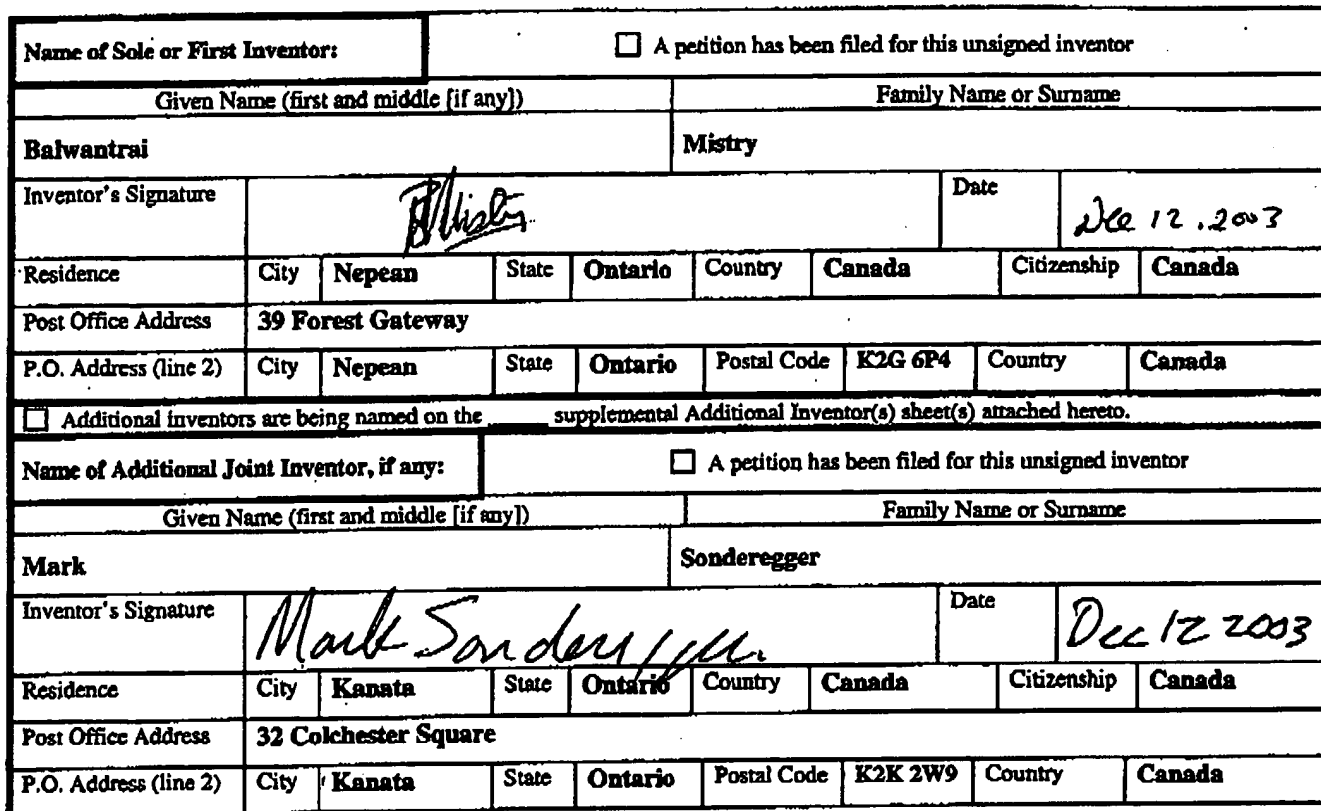 Name of Sole or First Inventor: ☐ A petition has been filed for this unsigned inventor
Given Name (first and middle [if any]) Family Name or Surname
Balwantrai Mistry
Inventor's Signature BMistry Date Dec 12, 2003
Residence City Nepean State Ontario Country Canada Citizenship Canada
Post Office Address 39 Forest Gateway
P.O. Address (line 2) City Nepean State Ontario Postal Code K2G 6P4 Country Canada
☐ Additional inventors are being named on the _____ supplemental Additional Inventor(s) sheet(s) attached hereto.
Name of Additional Joint Inventor, if any: ☐ A petition has been filed for this unsigned inventor
Given Name (first and middle [if any]) Family Name or Surname
Mark Sonderegger
Inventor's Signature Mark Sonderegger Date Dec 12 2003
Residence City Kanata State Ontario Country Canada Citizenship Canada
Post Office Address 32 Colchester Square
P.O. Address (line 2) City Kanata State Ontario Postal Code K2K 2W9 Country Canada